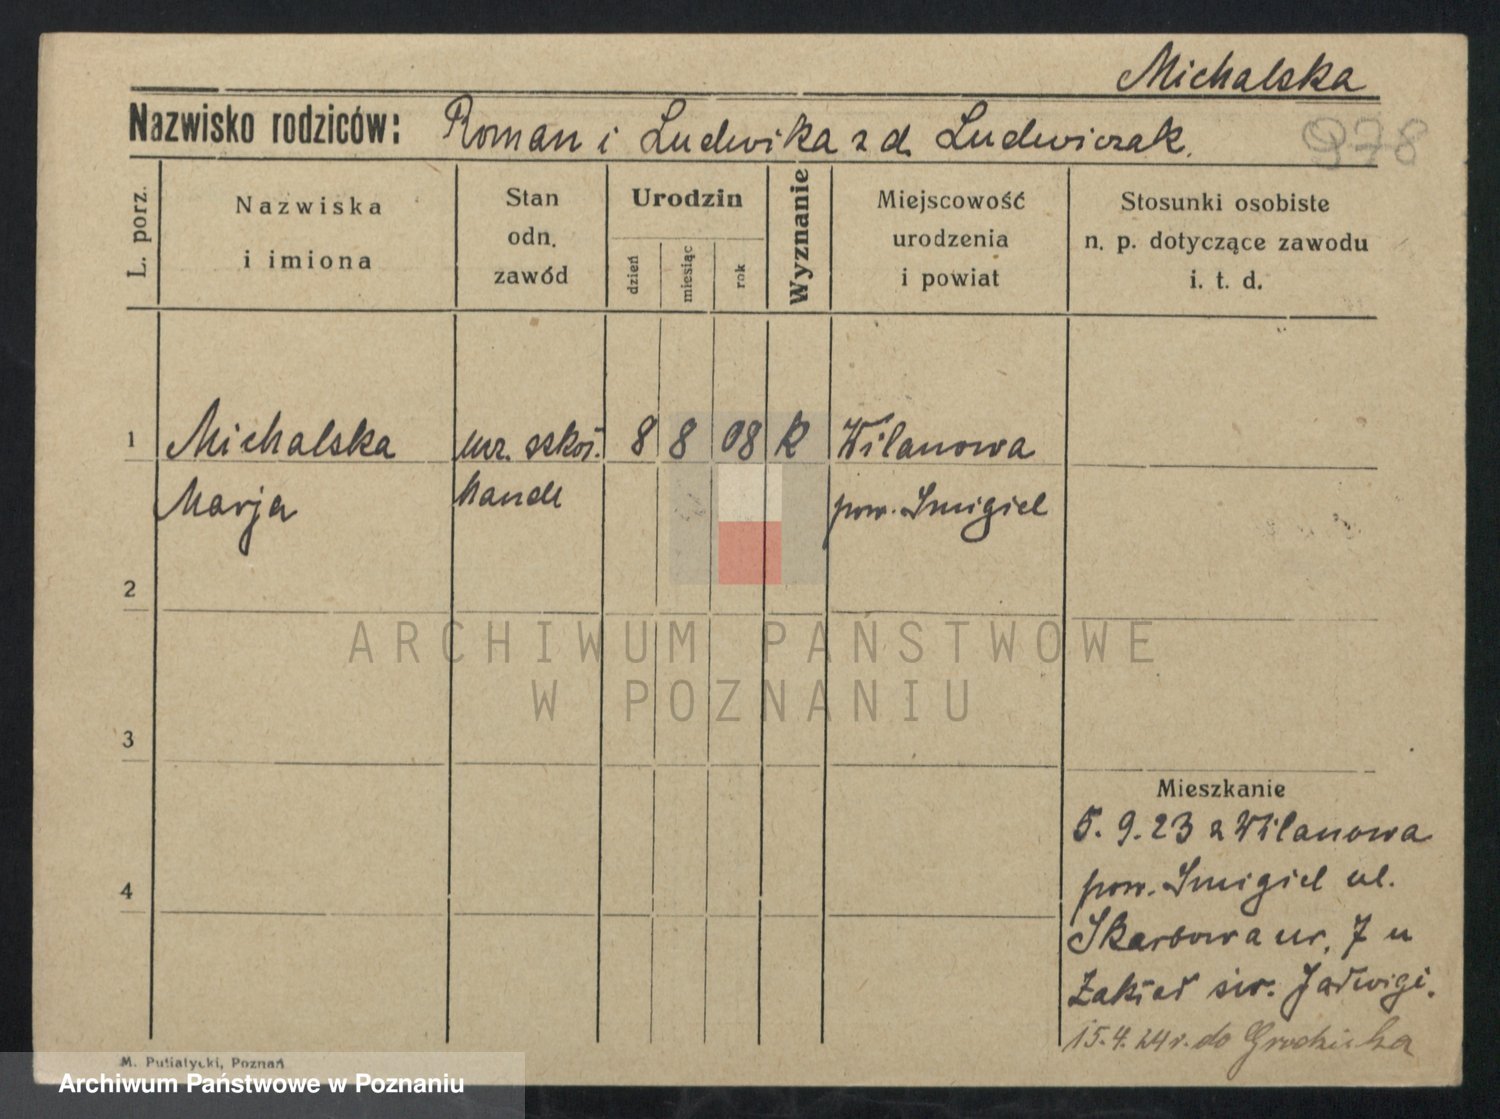 Michalska
Nazwisko rodziców: Roman i Ludwika z d. Ludwiczak.
978
L. porz.
Nazwiska
i imiona
Stan
odn.
zawód
Urodzin
dzień
miesiąc
rok
Wyznanie
Miejscowość
urodzenia
i powiat
Stosunki osobiste
n. p. dotyczące zawodu
i. t. d.
1 Michalska ucz. szkoł. 8 8 08 k Wilanowa
Marja handl pow. Smigiel
2
ARCHIWUM PAŃSTWOWE
W POZNANIU
3
Mieszkanie
5. 9. 23 z Wilanowa
4
pow. Smigiel ul.
Skarbowa nr. 7 u
Zakład św. Jadwigi.
15.4.24 r. do Grodziska
M. Putiatycki, Poznań
Archiwum Państwowe w Poznaniu